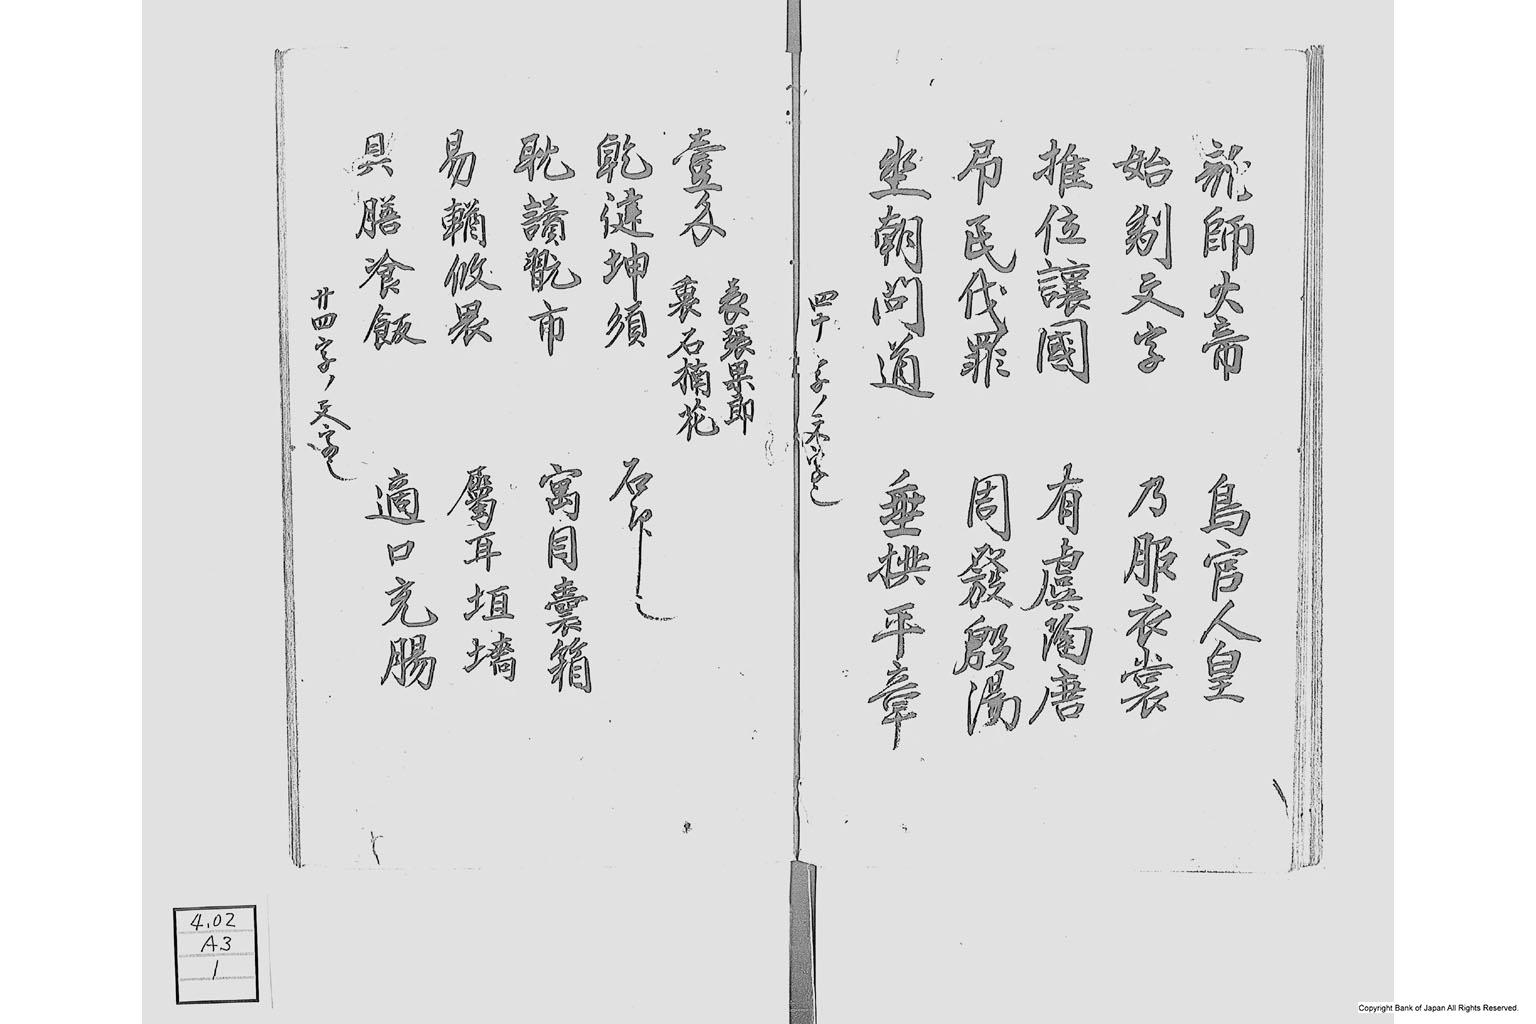 龍師火帝 鳥官人皇
始制文字 乃服衣裳
推位讓國 有虞陶唐
吊民伐罪 周發殷湯
坐朝問道 垂拱平章
四十字ノ文字
壹匁
表張果郎
裏石楠花
石印
乾健坤須
耽讀翫市 寓目囊箱
易輶攸畏 屬耳垣墻
具膳飡飯 適口充腸
廿四字ノ文字
4.02
A3
1
Copyright Bank of Japan All Rights Reserved.